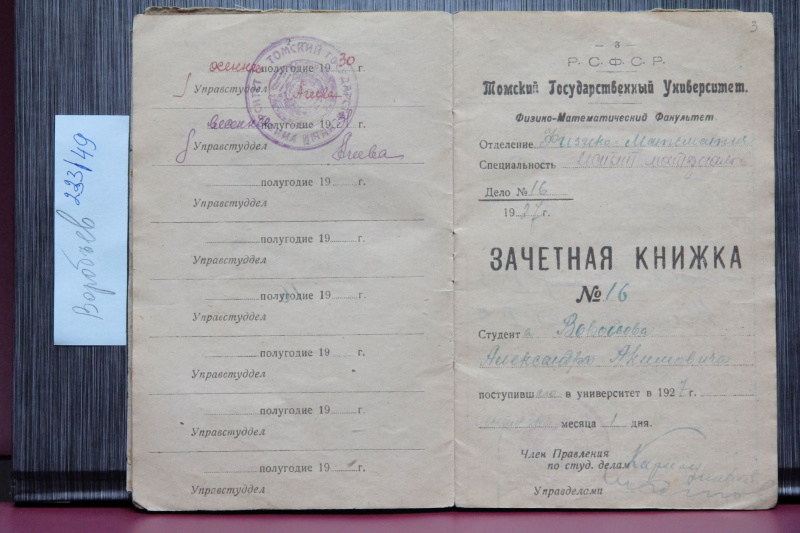 Воробьев 223/49
осеннее полугодие 1930 г.
Управстуддел Агеева
весеннее полугодие 1931 г.
Управстуддел Агеева
полугодие 19 г.
Управстуддел
полугодие 19 г.
Управстуддел
полугодие 19 г.
Управстуддел
полугодие 19 г.
Управстуддел
полугодие 19 г.
Управстуддел
полугодие 19 г.
Управстуддел
ТОМСКИЙ ГОСУДАРСТВЕННЫЙ УНИВЕРСИТЕТ
3
Р.С.Ф.С.Р.
Томский Государственный Университет.
Физико-Математический Факультет.
Отделение Физико-Математич
Специальность
Дело № 16
1927 г.
ЗАЧЕТНАЯ КНИЖКА
№ 16
Студента Воробьева
Александра Акимовича
поступивш в университет в 1927 г.
месяца 1 дня.
Член Правления
по студ. делам
Управделами